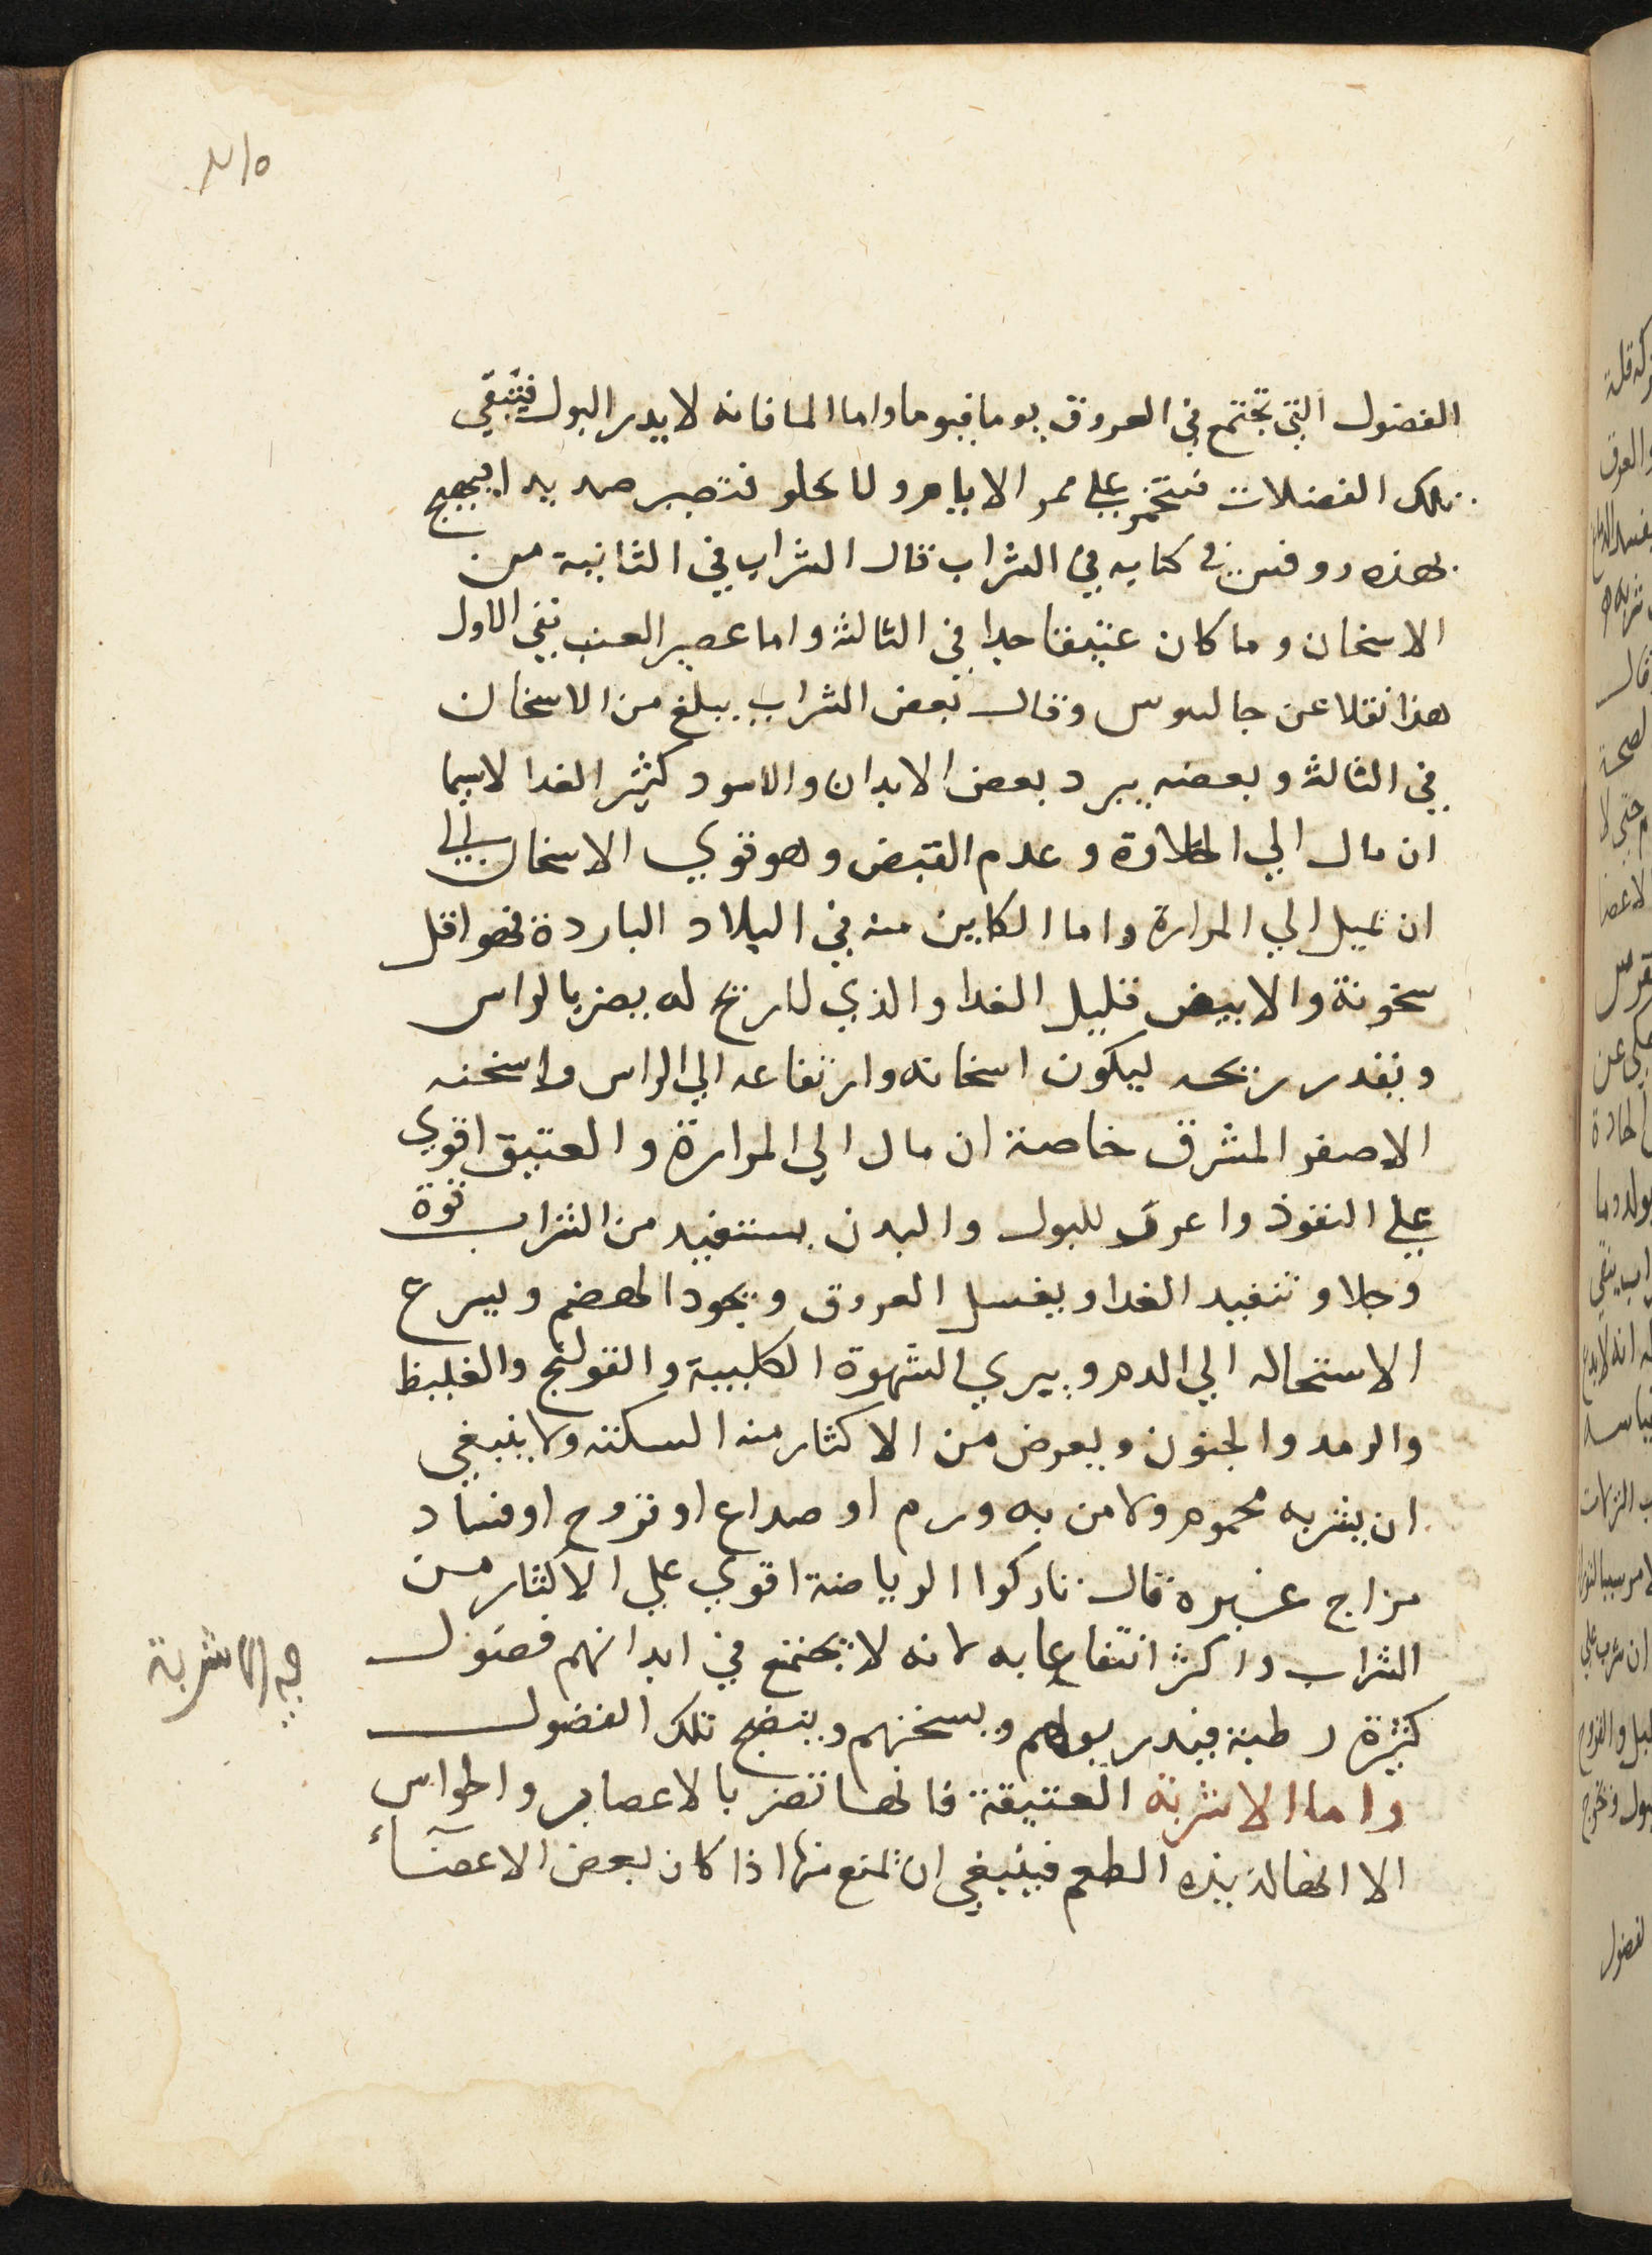 ٢١٥
الفضول التي تجتمع في العروق يوما فيوما واما الما فانه لا يدر البول فتبقي
تلك الفضلات فتتخمر علي ممر الايام ولا تحلو فتصير صديدا فيهيج
في كتابه في الشراب قال الشراب في الثانية من
الاسخان وما كان عتيقا جدا في الثالثة واما عصير العنب ففي الاول
هذا نقلا عن جالينوس وقال بعض الشراب يبلغ من الاسخان
في الثالثة وبعضه يبرد بعض الابدان والاسود كثير الغدا لاسيما
ان مال الي الحلاوة وعدم القبض وهو قوي الاسخان
ان يميل الي المرارة واما الكاين منه في البلاد الباردة فهو اقل
سخونة والابيض قليل الغدا والذي لا ريح له يضر بالراس
وبقدر ريحه ليكون اسخانه وارتفاعه الي الراس واسخنه
الاصفر المشرق خاصة ان مال الي المرارة والعتيق اقوي
علي النفوذ واعرق للبول والبدن يستفيد من الشراب قوة
وجلا وتنفيد الغدا ويغسل العروق ويجود الهضم ويسرع
الاستحاله الي الدم ويبري الشهوة الكلبية والقولنج والغليظ
والرمد والجنون ويعرض من الاكثار منه السكته ولا ينبغي
ان يشربه محموم ولا من به ورم او صداع او قروح او فساد
مزاج غيره قال تاركوا الرياضة اقوي علي الاكثار من
الشراب واكثر انتفاعا به لانه لا يجتمع في ابدانهم فضول
كثيرة رطبة فيدر بولهم ويسخنهم وينضج تلك الفضول
واما الاشربة العتيقة فانها تضر بالاعصاب والحواس
الا انها لذيذه الطعم فينبغي ان تمنع منها اذا كان بعض الاعضاء
الاشربة